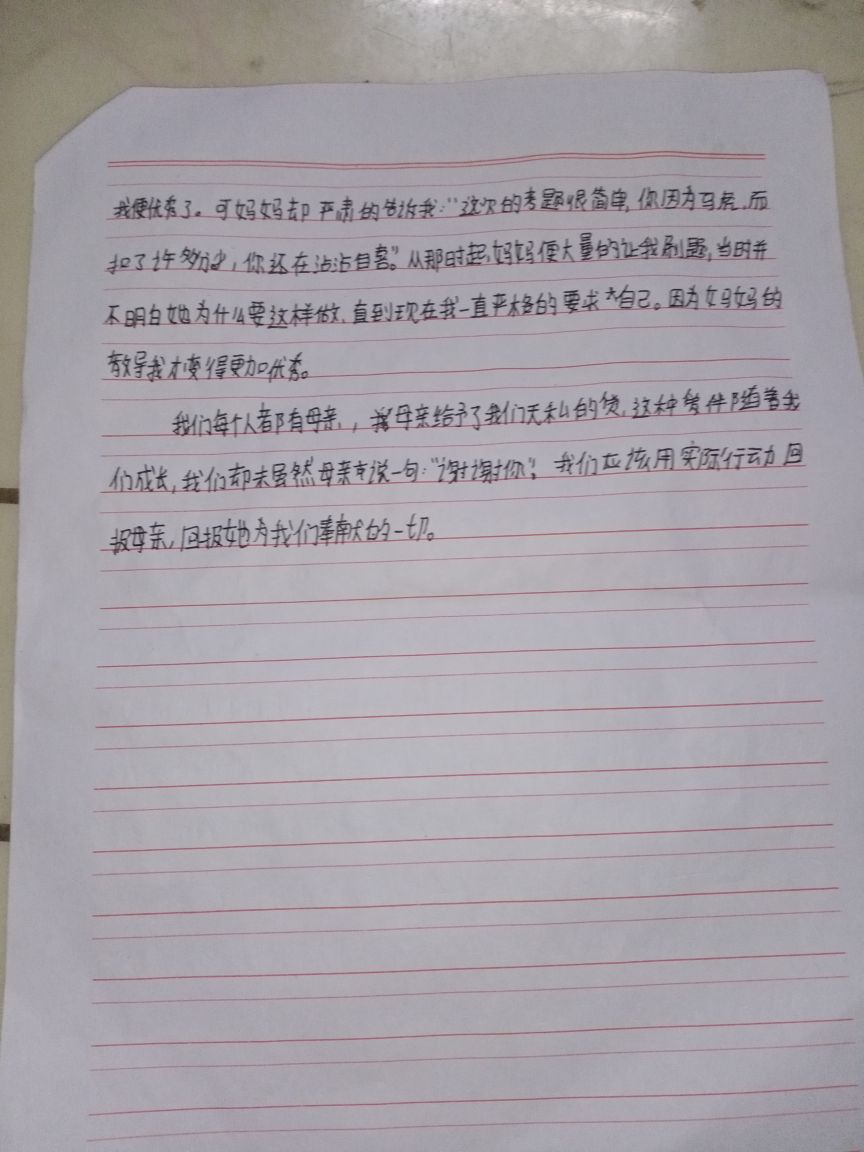 我便优秀了。可妈妈却严肃的告诉我：“这次的考题很简单，你因为马虎，而
扣了许多分，你还在沾沾自喜”。从那时起，妈妈便大量的让我刷题，当时并
不明白她为什么要这样做，直到现在我一直严格的要求自己。因为妈妈的
教导我才变得更加优秀。
我们每个人都有母亲，，母亲给予了我们无私的爱，这种爱伴随着我
们成长，我们却未虽然母亲说一句：“谢谢你”。我们应该用实际行动回
报母亲，回报她为我们奉献的一切。